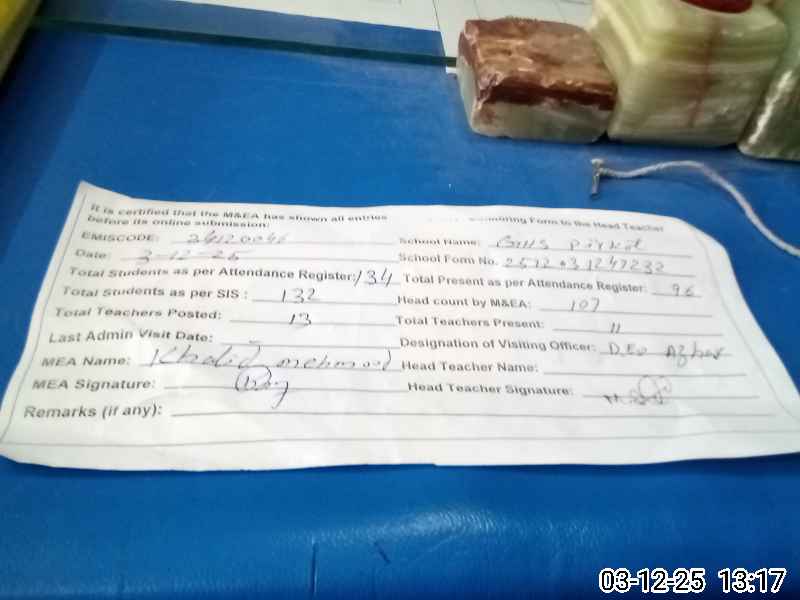 It is certified that the M&EA has shown all entries Monitoring Form to the Head Teacher
before its online submission:
EMISCODE: 24120046 School Name: GHS
Date: 3-12-25 School Form No.
Total Students as per Attendance Register: 134 Total Present as per Attendance Register: 96
Total Students as per SIS : 132 Head count by M&EA: 107
Total Teachers Posted: 13 Total Teachers Present: 11
Last Admin Visit Date: Designation of Visiting Officer: D.Eo Azhar
MEA Name: Khalid mehmood Head Teacher Name:
MEA Signature: Head Teacher Signature:
Remarks (if any):
03-12-25 13:17